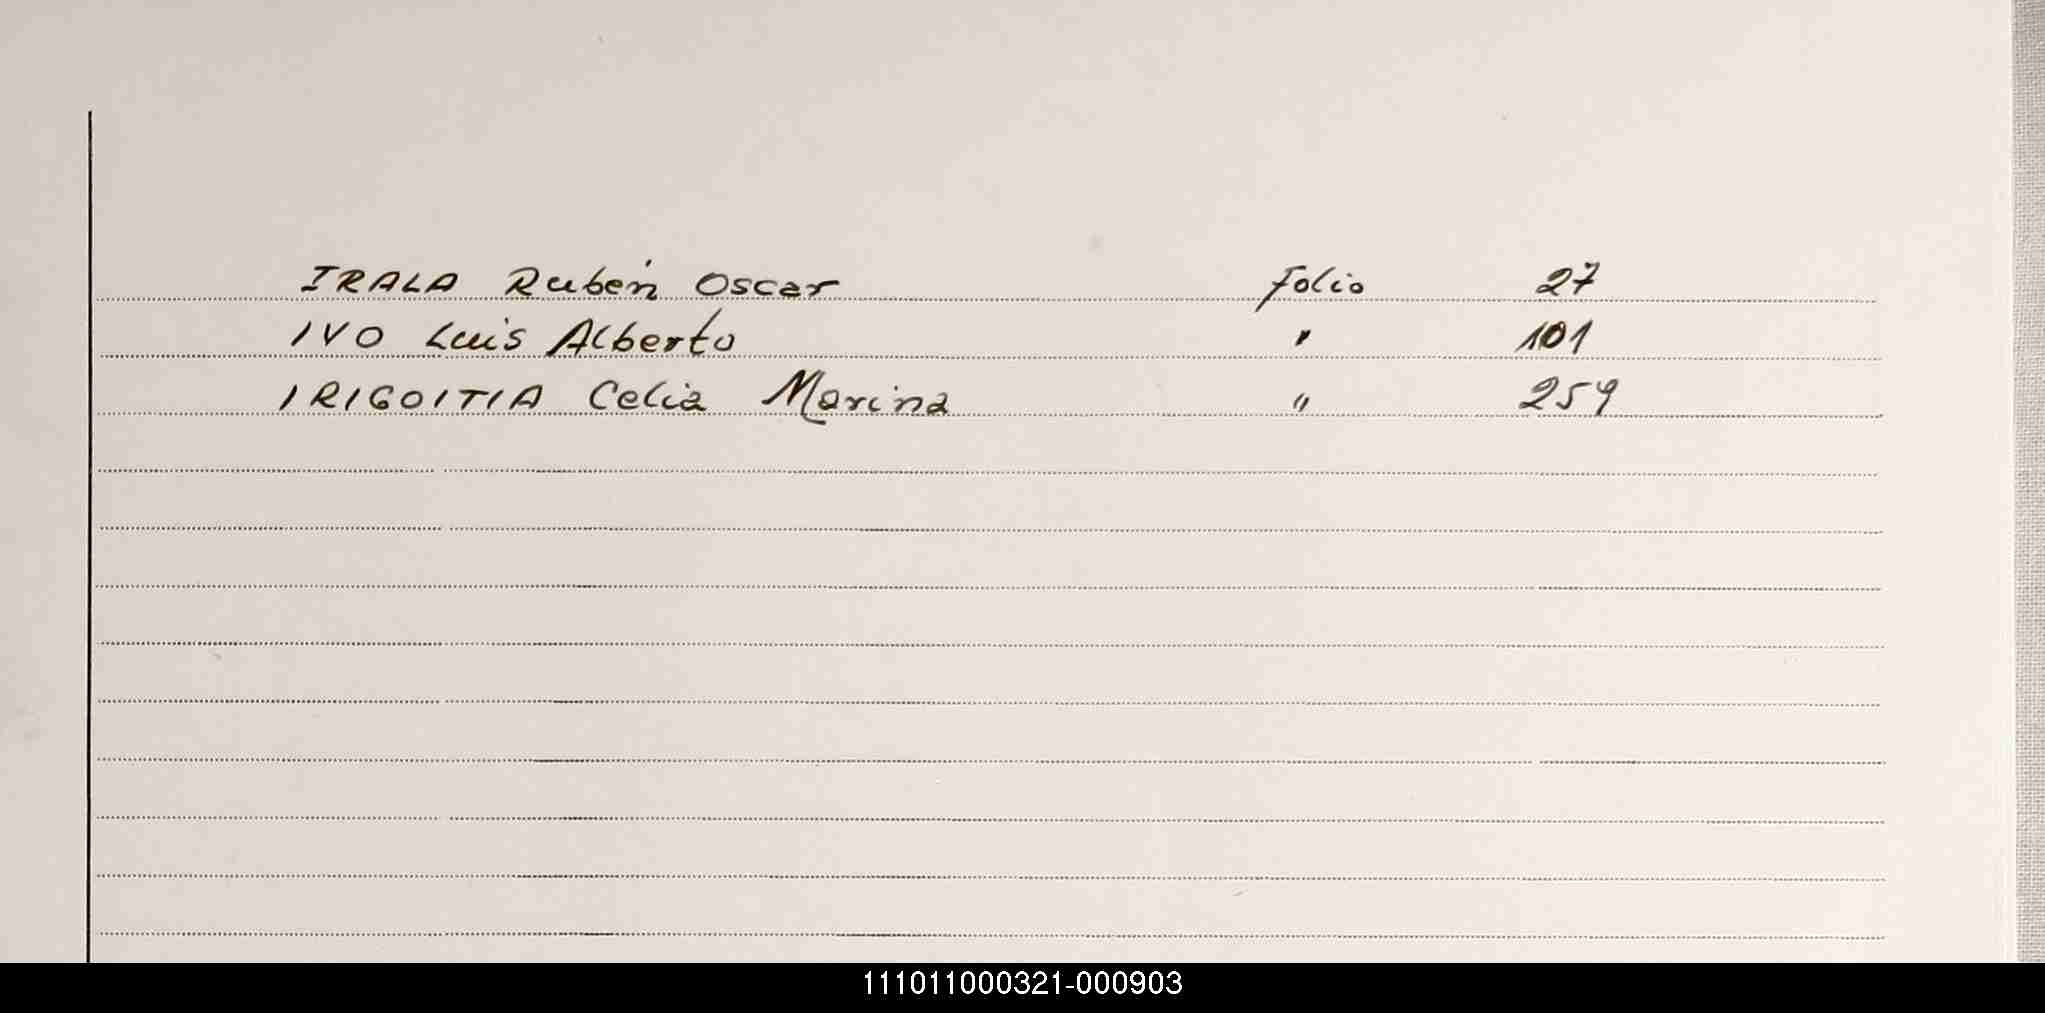 IRALA Rubén Oscar folio 27
IVO Luis Alberto " 101
IRIGOITIA Celia Marina " 259
111011000321-000903